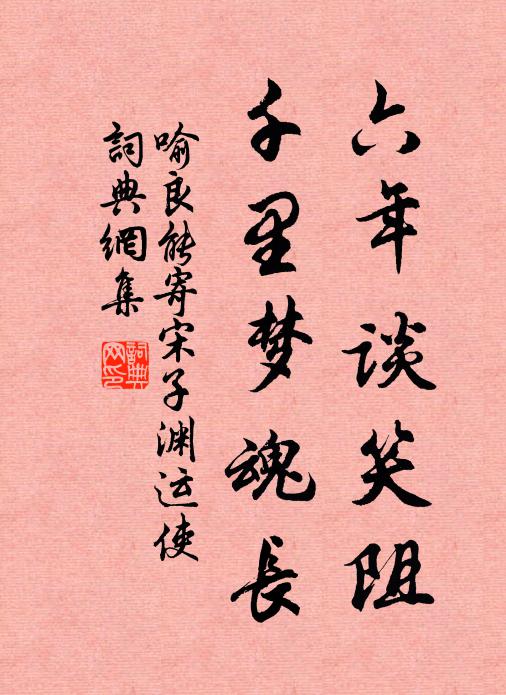 六年谈笑阻
千里梦魂長
喻良能寄宋子渊运使
詞典網集
詞典网印